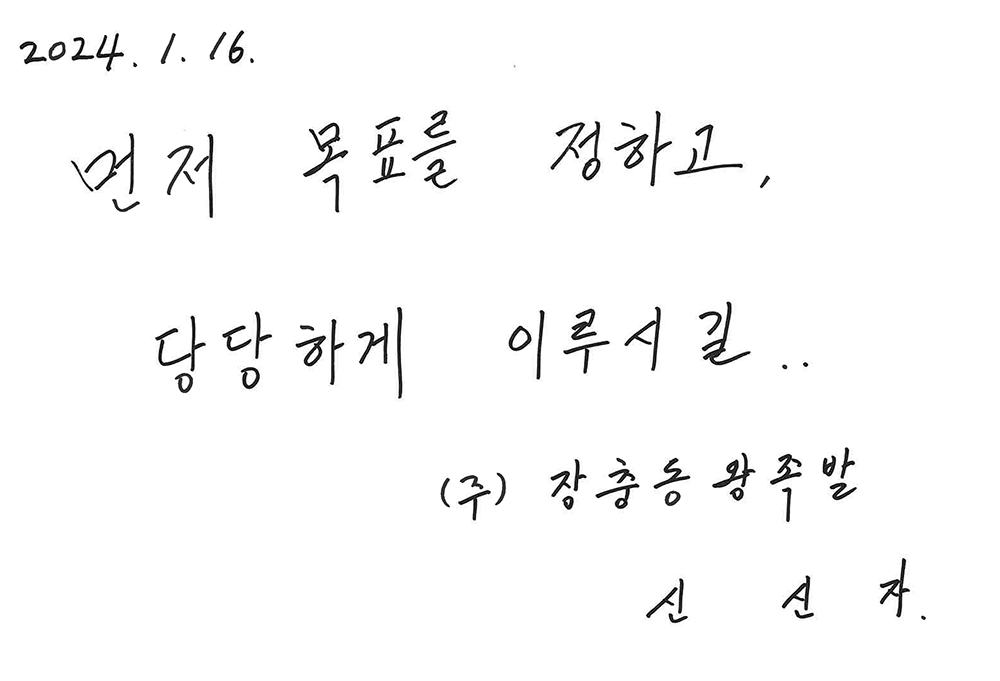 2024. 1. 16.
먼저 목표를 정하고,
당당하게 이루시길..
(주) 장충동왕족발
신 신 자.